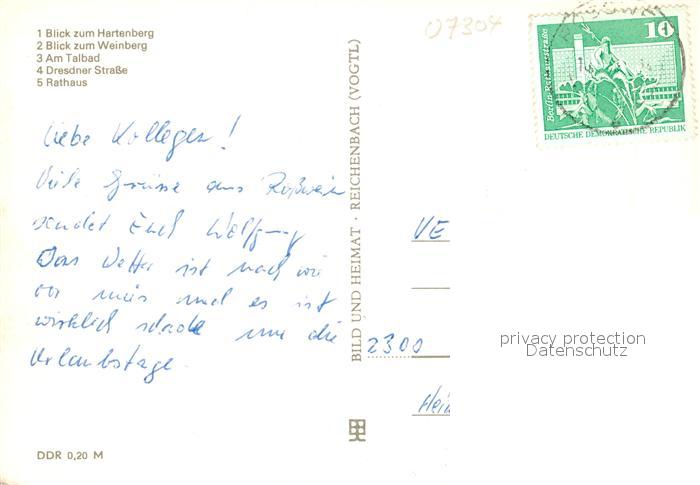 1 Blick zum Hartenberg
2 Blick zum Weinberg
3 Am Talbad
4 Dresdner Straße
5 Rathaus
Liebe Kollegen!
Viele Grüsse aus Roßwein
sendet Euch Wolfgang
Das Wetter ist nach wie
vor mies und es ist
wirklich schade um die
Urlaubstage.
DDR 0,20 M
BILD UND HEIMAT · REICHENBACH (VOGTL)
07304
10
Berlin, Rathausstraße
DEUTSCHE DEMOKRATISCHE REPUBLIK
VE
2300
privacy protection
Datenschutz